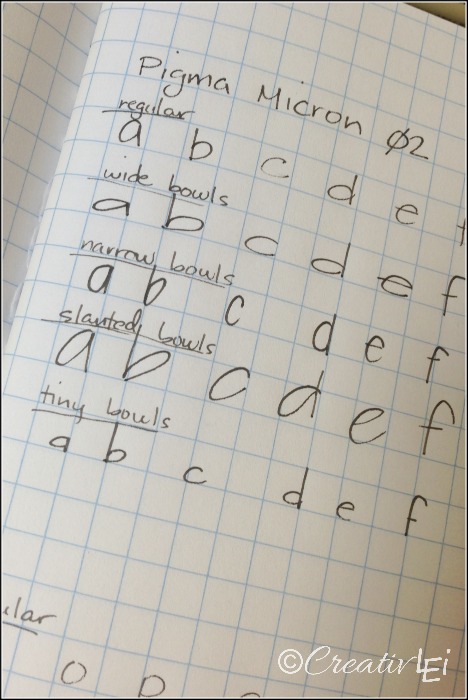 Pigma Micron Ø2
regular
a b c d e f
wide bowls
a b c d e f
narrow bowls
a b c d e f
slanted bowls
a b c d e f
tiny bowls
a b c d e f
ular
o p
©CreativLEi